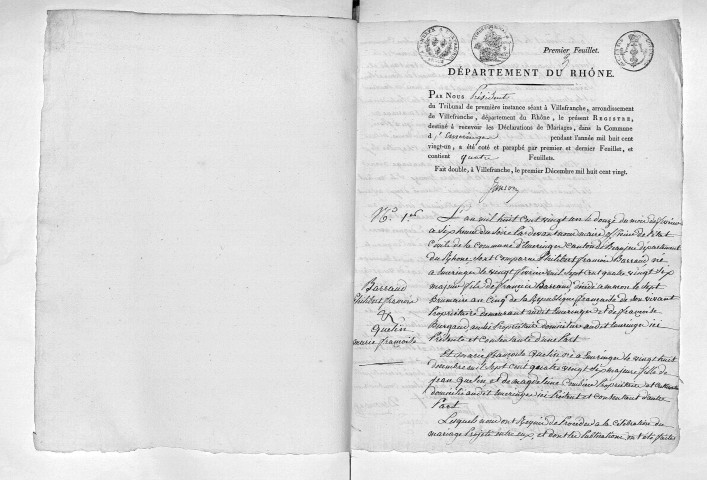 Premier Feuillet.
DÉPARTEMENT DU RHÔNE.
PAR NOUS Président
du Tribunal de première instance séant à Villefranche, arrondissement
de Villefranche, département du Rhône, le présent REGISTRE,
destiné à recevoir les Déclarations de Mariages, dans la Commune
d'Emeringes pendant l'année mil huit cent
vingt-un, a été coté et paraphé par premier et dernier Feuillet, et
contient quatre Feuillets.
Fait double, à Villefranche, le premier Décembre mil huit cent vingt.
No. 1er
Barraud
Philibert françois
&
Quelin
marie françoise
L'an mil huit cent vingt un le douze du mois de
a sept heures du soir Par devant nous maire officier de l'état
Civil de la commune d'Emeringes canton de Beaujeu département
du Rhône sont comparus Philibert françois Barraud né
a Emeringes le vingt février mil sept cent quatre vingt six
majeur fils de françois Barraud, décédé le sept
Brumaire an Cinq de la République française de son vivant
Propriétaire demeurant audit Emeringes et de françoise
Burgaud Propriétaire domiciliée audit Emeringes ici
Présente et Consentante d'une Part
Et marie françoise Quelin née a Emeringes le vingt huit
mil sept cent quatre vingt six majeure fille de
jean Quelin et de magdeleine Propriétaire et
domiciliés audit Emeringes ici Présent et consentant d'autre
Part
Lesquels nous ont Requis de Procéder a la Célébration du
mariage Projeté entre eux, et dont les publications ont été faites